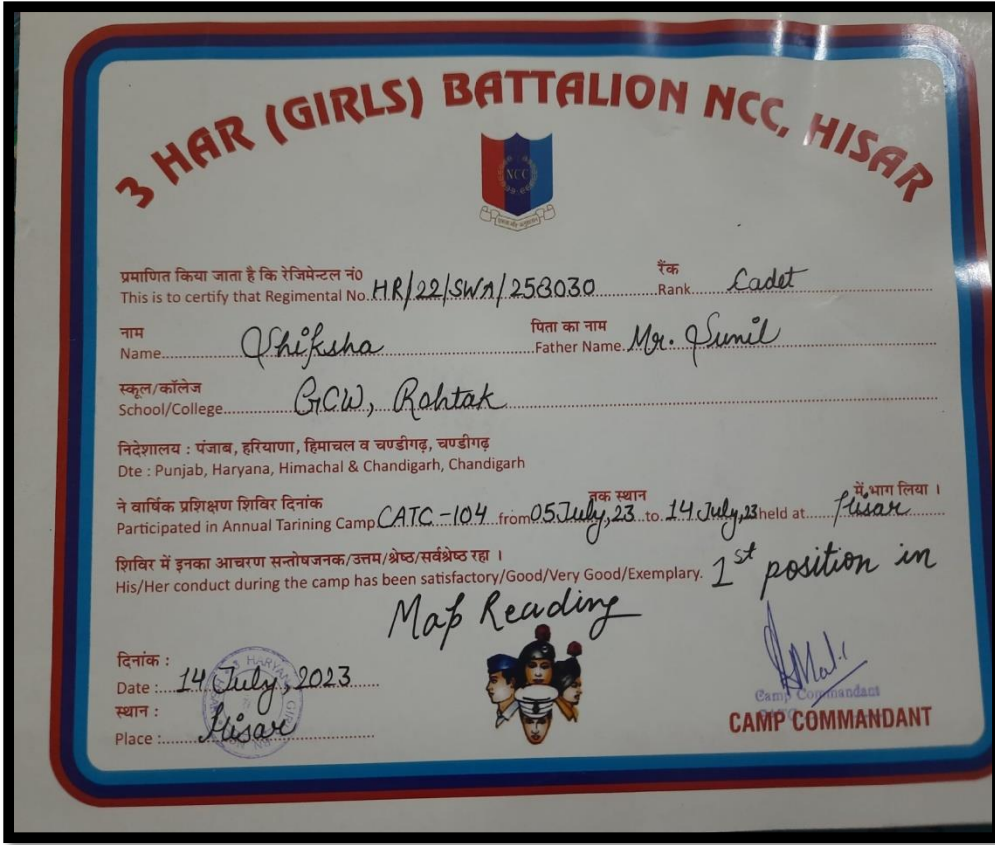 3 HAR (GIRLS) BATTALION NCC, HISAR
NCC
प्रमाणित किया जाता है कि रेजिमेन्टल नं0 रैंक
This is to certify that Regimental No. HR/22/SWA/258030 Rank Cadet
नाम पिता का नाम
Name Shiksha Father Name Mr. Sunil
स्कूल/कॉलेज
School/College GCW, Rohtak
निदेशालय : पंजाब, हरियाणा, हिमाचल व चण्डीगढ़, चण्डीगढ़
Dte : Punjab, Haryana, Himachal & Chandigarh, Chandigarh
ने वार्षिक प्रशिक्षण शिविर दिनांक तक स्थान में भाग लिया ।
Participated in Annual Tarining Camp CATC-104 from 05 July, 23 to 14 July, 23 held at Hisar
शिविर में इनका आचरण सन्तोषजनक/उत्तम/श्रेष्ठ/सर्वश्रेष्ठ रहा ।
His/Her conduct during the camp has been satisfactory/Good/Very Good/Exemplary. 1st position in
Map Reading
दिनांक :
Date : 14 July, 2023
स्थान :
Place : Hisar
Camp Commandant
CAMP COMMANDANT